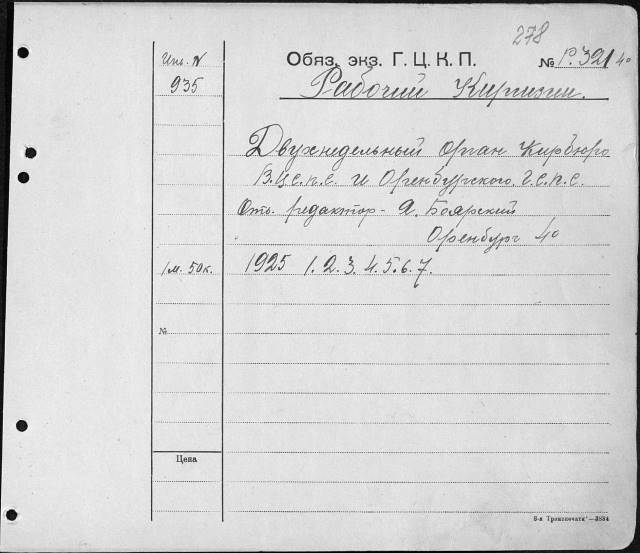 278
Инв. N
Обяз. экз. Г. Ц. К. П.
№ Р. 321 40
935
Рабочий Киргизии.
Двухнедельный орган Кирбюро
В.Ц.С.П.С. и Оренбургского Г.С.П.С.
Отв. редактор - Я. Боярский
Оренбург 4°
1 м. 50 к.
1925 1. 2. 3. 4. 5. 6. 7.
№
Цена